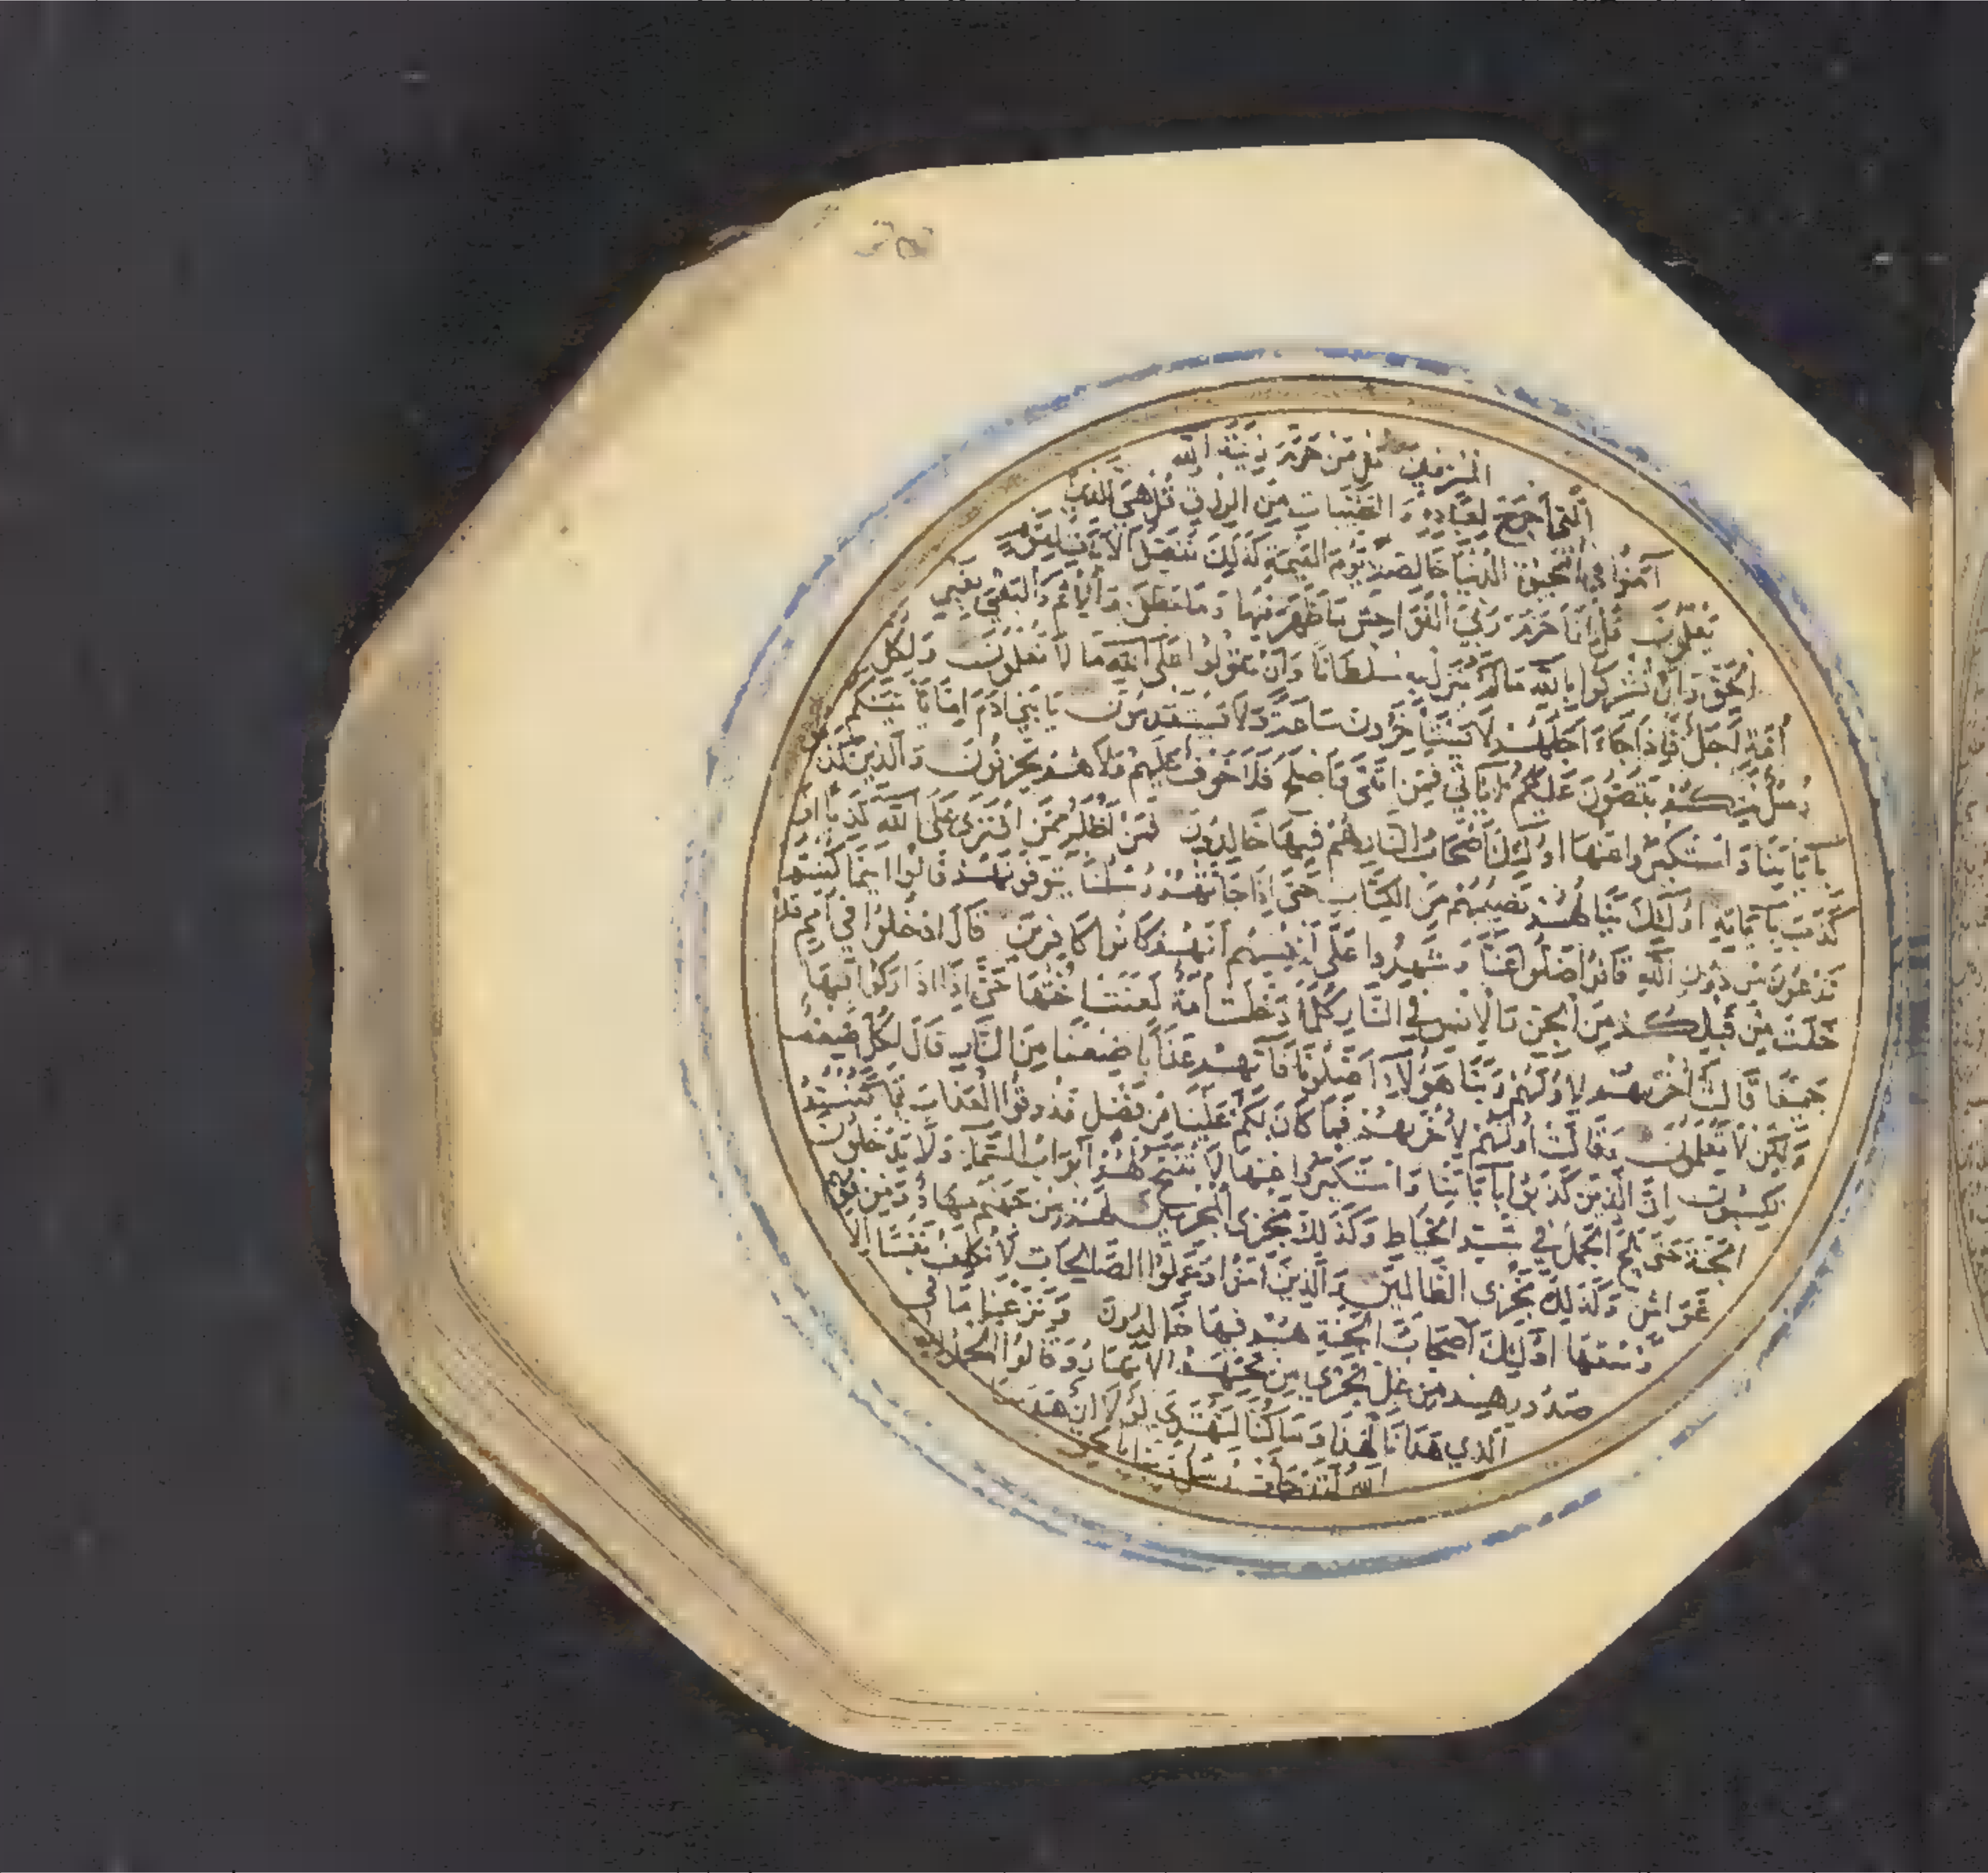 المسرفين قل من حرم زينة الله
التي أخرج لعباده والطيبات من الرزق قل هي للذين
آمنوا في الحيوة الدنيا خالصة يوم القيمة كذلك نفصل الآيات لقوم
يعلمون قل إنما حرم ربي الفواحش ما ظهر منها وما بطن والإثم والبغي بغير
الحق وأن تشركوا بالله ما لم ينزل به سلطانا وأن تقولوا على الله ما لا تعلمون ولكل
أمة أجل فإذا جاء أجلهم لا يستأخرون ساعة ولا يستقدمون يا بني آدم إما يأتينكم
رسل منكم يقصون عليكم آياتي فمن اتقى وأصلح فلا خوف عليهم ولا هم يحزنون والذين كذبوا
بآياتنا واستكبروا عنها أولئك أصحاب النار هم فيها خالدون فمن أظلم ممن افترى على الله كذبا أو
كذب بآياته أولئك ينالهم نصيبهم من الكتاب حتى إذا جاءتهم رسلنا يتوفونهم قالوا أينما كنتم
تدعون من دون الله قالوا ضلوا عنا وشهدوا على أنفسهم أنهم كانوا كافرين قال ادخلوا في أمم قد
خلت من قبلكم من الجن والإنس في النار كلما دخلت أمة لعنت أختها حتى إذا اداركوا فيها
جميعا قالت أخريهم لأوليهم ربنا هؤلاء أضلونا فآتهم عذابا ضعفا من النار قال لكل ضعف
ولكن لا تعلمون وقالت أوليهم لأخريهم فما كان لكم علينا من فضل فذوقوا العذاب بما كنتم
تكسبون إن الذين كذبوا بآياتنا واستكبروا عنها لا تفتح لهم أبواب السماء ولا يدخلون
الجنة حتى يلج الجمل في سم الخياط وكذلك نجزي المجرمين لهم من جهنم مهاد ومن فوقهم
غواش وكذلك نجزي الظالمين والذين آمنوا وعملوا الصالحات لا نكلف نفسا إلا
وسعها أولئك أصحاب الجنة هم فيها خالدون ونزعنا ما في
صدورهم من غل تجري من تحتهم الأنهار وقالوا الحمد لله
الذي هدانا لهذا وما كنا لنهتدي لولا أن هدينا
الله لقد جاءت رسل ربنا بالحق